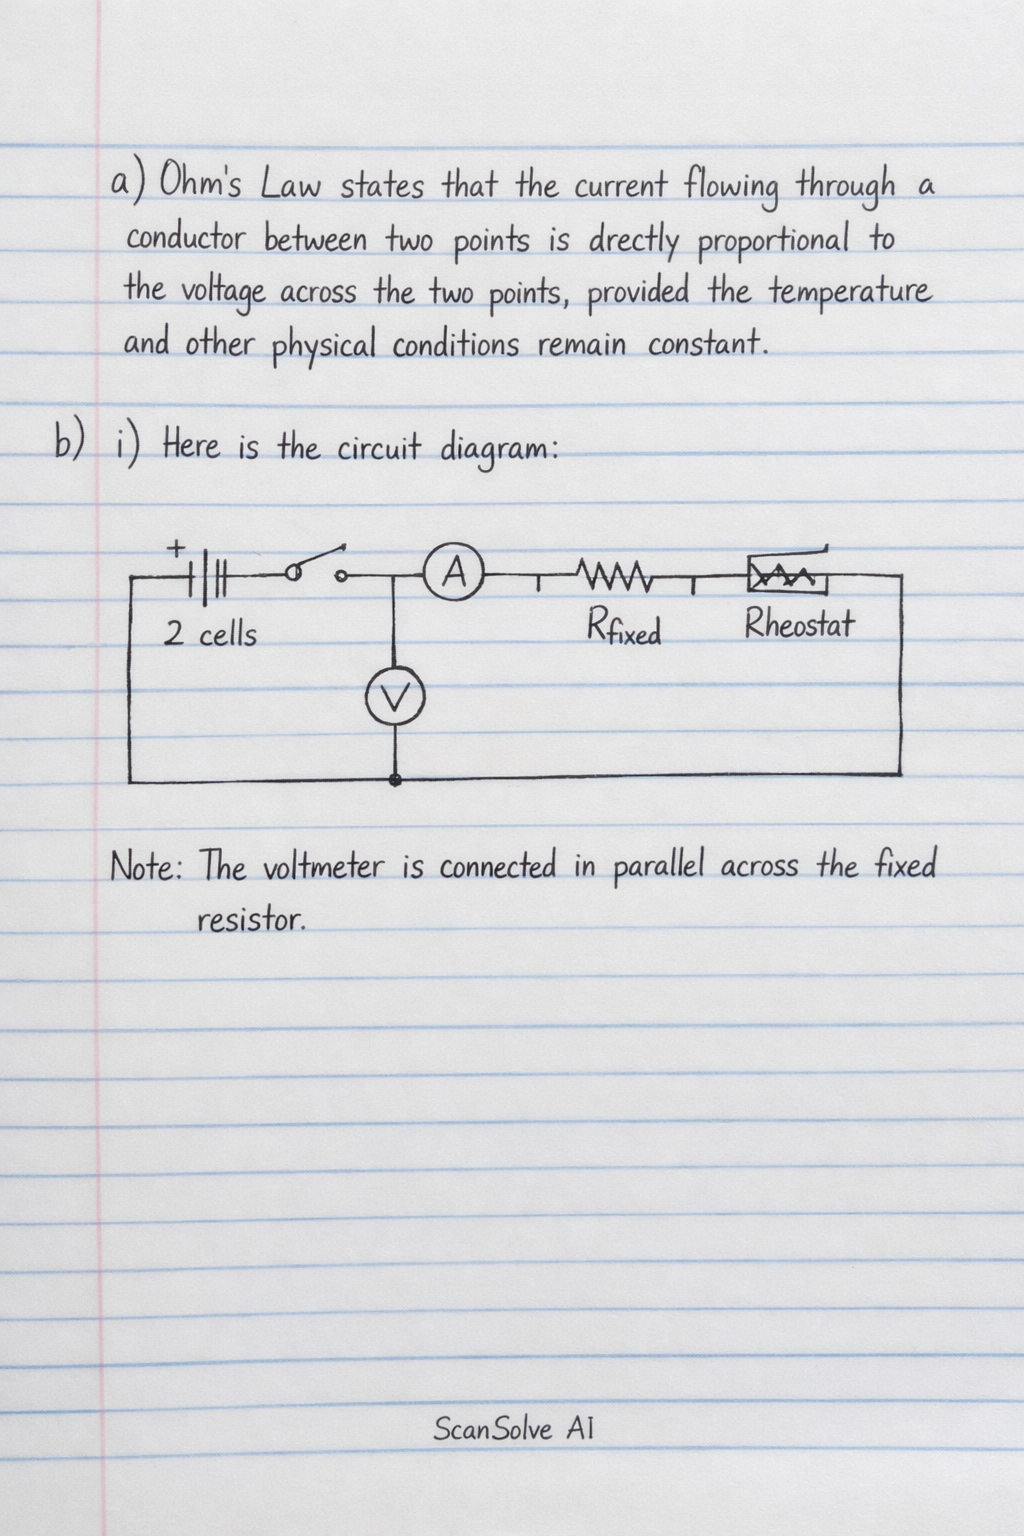 a) Ohm's Law states that the current flowing through a
conductor between two points is drectly proportional to
the voltage across the two points, provided the temperature
and other physical conditions remain constant.
b) i) Here is the circuit diagram:
+
A
2 cells
Rfixed
Rheostat
V
Note: The voltmeter is connected in parallel across the fixed
resistor.
ScanSolve AI